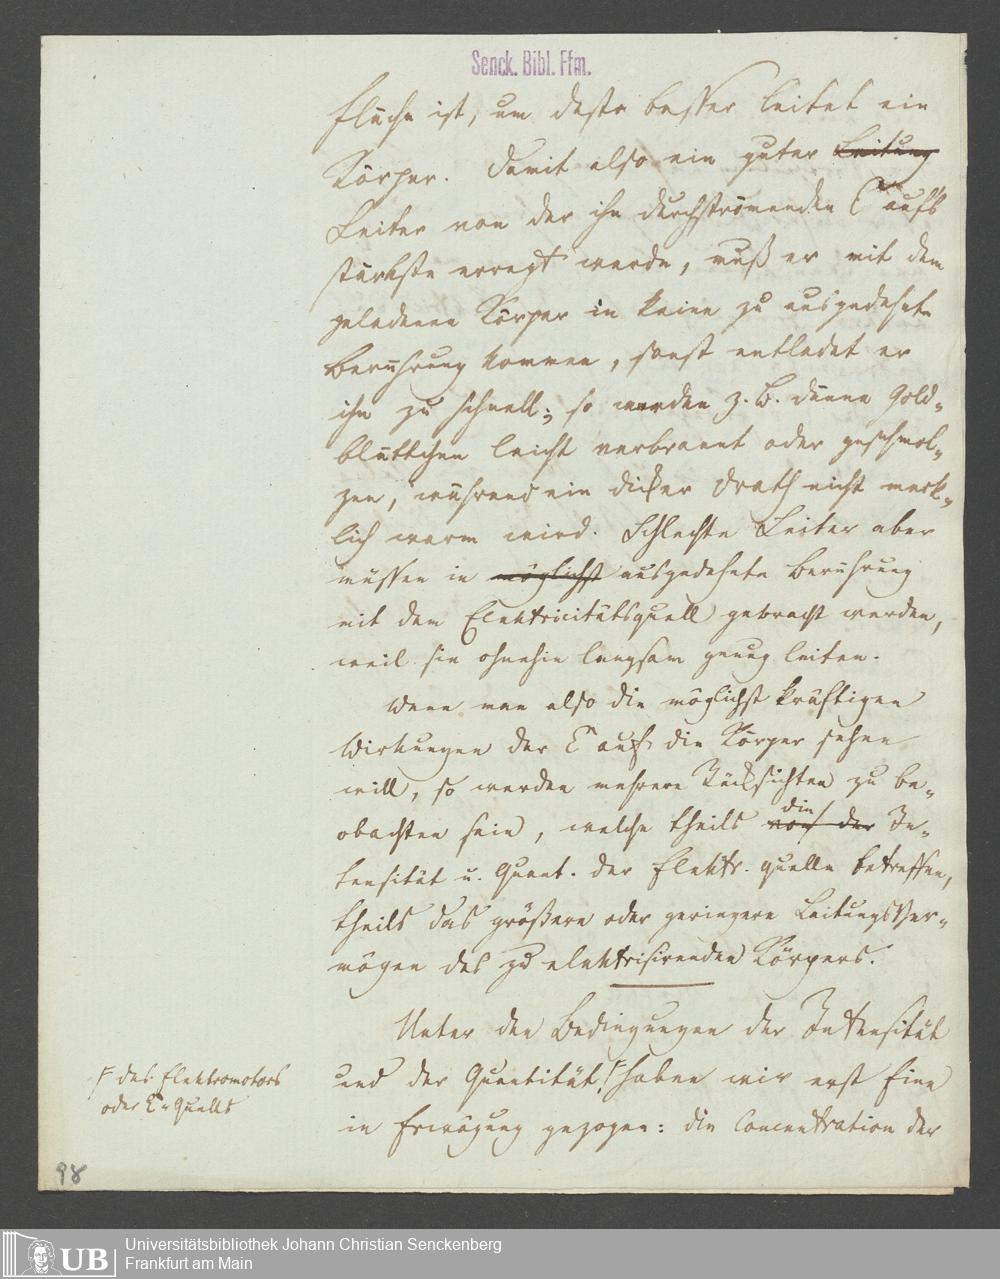 Senck. Bibl. Ffm.
Fläche ist, um desto besser leitet ein
Körper. Damit also ein guter Leitung
Leiter von der ihn durchströmenden E aufs
stärkste erregt werde, muß er mit dem
geladenen Körper in keine zu ausgedehnte
Berührung kommen, sonst entladet er
ihn zu schnell; so werden z. B. dünne Gold-
blättchen leicht verbrannt oder geschmol-
zen, während ein dicker Drath nicht merk-
lich warm wird. Schlechte Leiter aber
müssen in möglichst ausgedehnte Berührung
mit dem Elektricitätsquell gebracht werden,
weil sie ohnehin langsam genug leiten.
Wenn man also die möglichst kräftigen
Wirkungen der E auf die Körper sehen
will, so werden mehrere Rücksichten zu be-
obachten sein, welche theils von der die In-
tensität u. Quant. der Elektr. quelle betreffen,
theils das größere oder geringere Leitungsver-
mögen des zu elektrisirenden Körpers.
Unter den Bedingungen der Intensität
und der Quantität, F haben wir erst Eine
in Erwägung gezogen: die Concentration der
F des Elektromotors
oder E-Quells
98
UB
Universitätsbibliothek Johann Christian Senckenberg
Frankfurt am Main